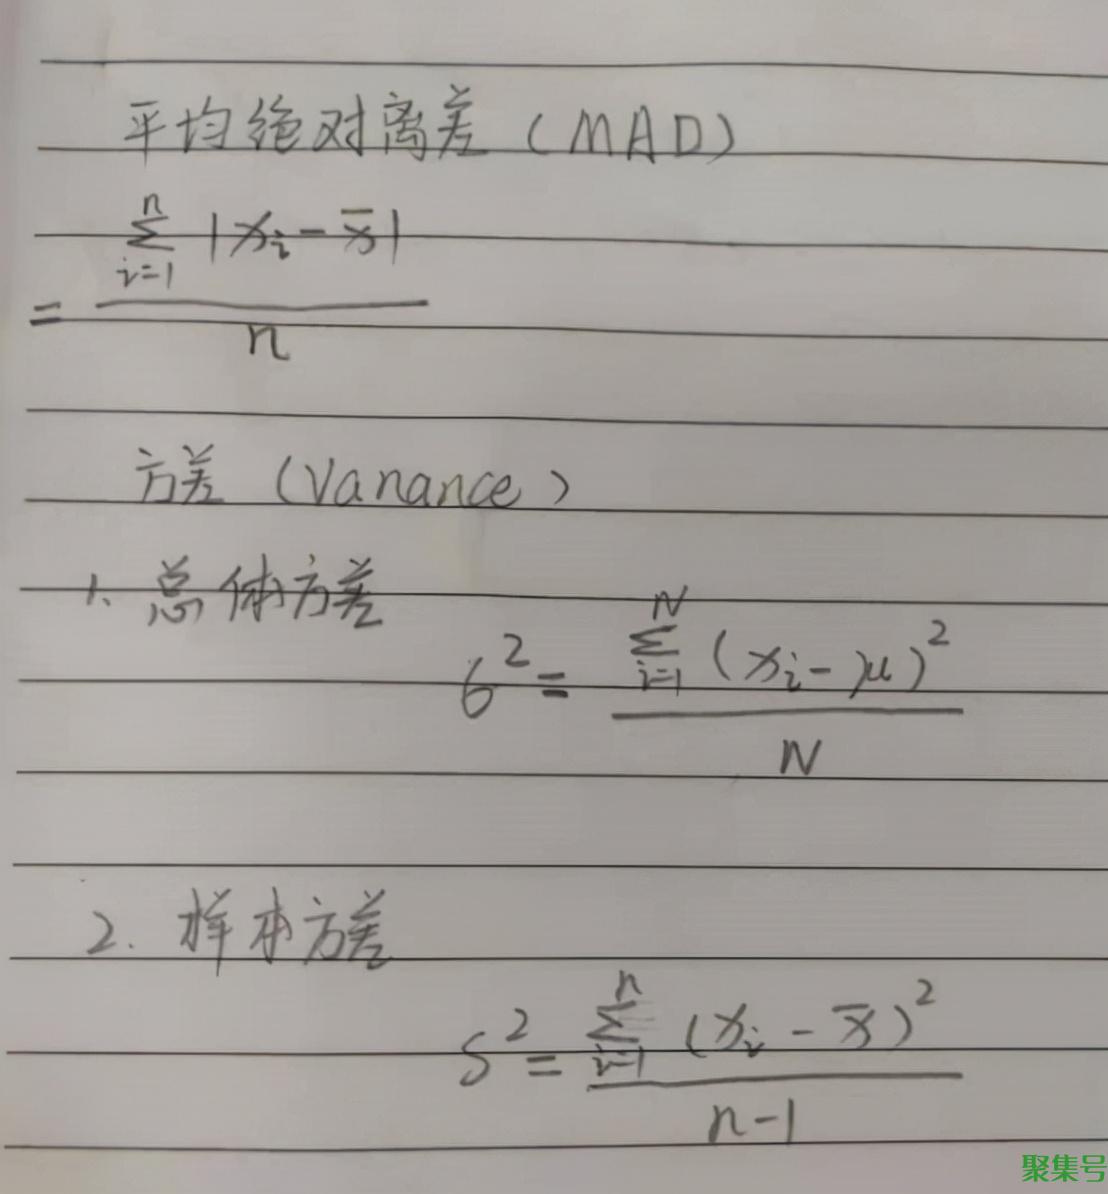 平均绝对离差(MAD)
= \frac{\sum_{i=1}^{n} |x_i - \bar{x}|}{n}
方差(Variance)
1. 总体方差
σ² = \frac{\sum_{i=1}^{N} (x_i - μ)^2}{N}
2. 样本方差
S² = \frac{\sum_{i=1}^{n} (x_i - \bar{x})^2}{n-1}
聚集号